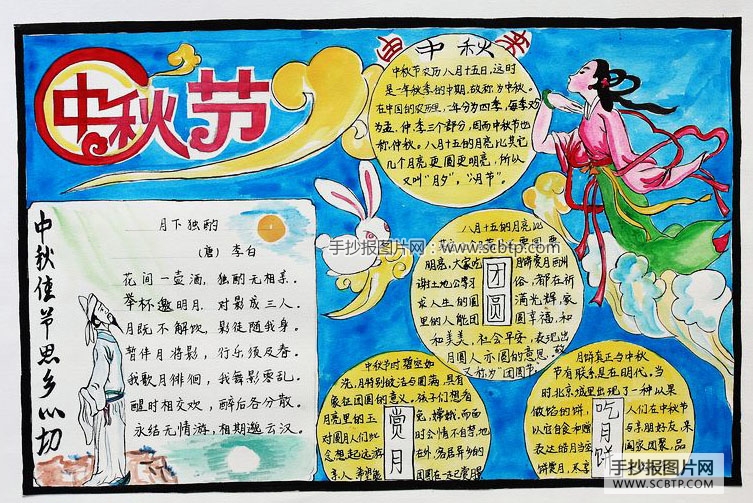 中秋节
中秋佳节思乡心切
月下独酌
(唐) 李白
花间一壶酒，独酌无相亲。
举杯邀明月，对影成三人。
月既不解饮，影徒随我身。
暂伴月将影，行乐须及春。
我歌月徘徊，我舞影零乱。
醒时相交欢，醉后各分散。
永结无情游，相期邈云汉。
中秋
中秋节农历八月十五日，这时
是一年秋季的中期，故称为中秋。
在中国的农历里，一年分为四季，每季又分
为孟、仲、季三个部分，因而中秋节也
称仲秋。八月十五的月亮比其它
几个月亮更圆更明亮，所以
又叫“月夕”，“月节”。
团圆
八月十五的月亮比
明亮，大家吃
谢土地公等习俗，都在祈
求人生的圆满光辉，家
里的人能团圆幸福，和
和美美，社会平安，表现出
月圆人亦圆的意思，故
又称为“团圆节”
赏月
中秋节时
象征团圆的意义。孩子们想看
月亮里的玉
吃月饼
月饼真正与中秋
节有联系是在明代。当
时北京城里出现了一种以果
做馅的饼，人们在中秋节
阖家团聚，品
手抄报图片网：www.scbtp.com
手抄报图片网
WWW.SCBTP.COM